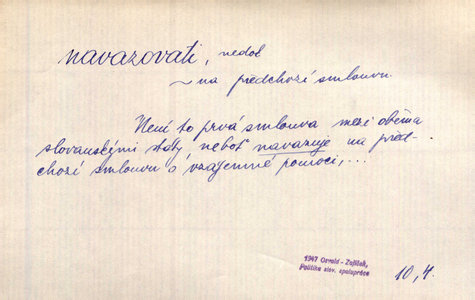 navazovati, nedok
~ na předchozí smlouvu.
Není to prvá smlouva mezi oběma
slovanskými státy neboť navazuje na před-
chozí smlouvu o vzájemné pomoci,...
1947 Osvald - Zajíček,
Politika slov. spolupráce
10,4.